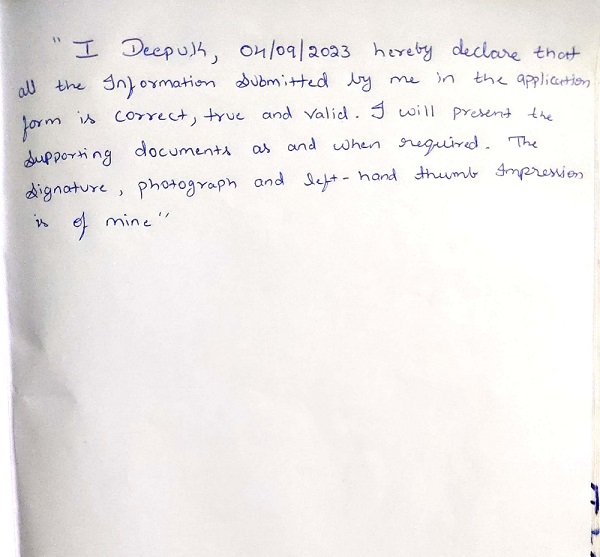 "I Deepulh, 04/09/2023 hereby declare that
all the Information submitted by me in the application
form is correct, true and valid. I will present the
supporting documents as and when required. The
signature, photograph and left-hand thumb Impression
is of mine"